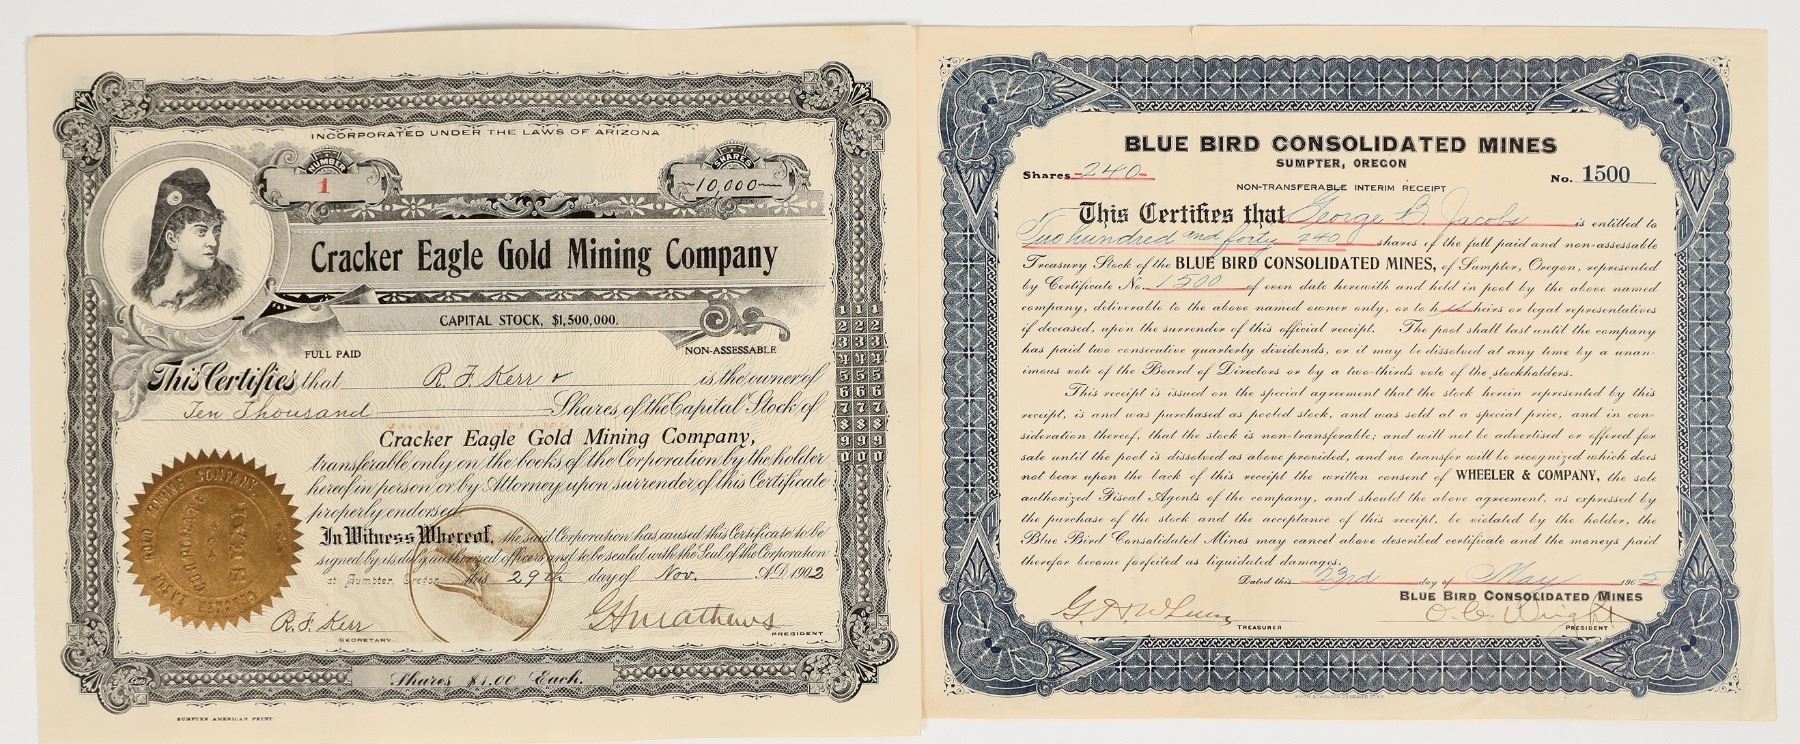 INCORPORATED UNDER THE LAWS OF ARIZONA
NUMBER
1
SHARES
10,000
Cracker Eagle Gold Mining Company
CAPITAL STOCK, $1,500,000.
FULL PAID
NON-ASSESSABLE
This Certifies that R. F. Kerr is the owner of
Ten Thousand Shares of the Capital Stock of
Cracker Eagle Gold Mining Company,
transferable only on the books of the Corporation by the holder
hereof in person or by Attorney upon surrender of this Certificate
properly endorsed.
In Witness Whereof, the said Corporation has caused this Certificate to be
signed by its duly authorized officers and to be sealed with the Seal of the Corporation
at Sumpter, Oregon this 29th day of Nov. A.D. 1902
R. F. Kerr
SECRETARY
G H Mathews
PRESIDENT
Shares $1.00 Each.
SUMPTER AMERICAN PRINT
BLUE BIRD CONSOLIDATED MINES
SUMPTER, OREGON
Shares 240
No. 1500
NON-TRANSFERABLE INTERIM RECEIPT
This Certifies that George B. Jacobs is entitled to
Two hundred and forty 240 shares of the full paid and non-assessable
Treasury Stock of the BLUE BIRD CONSOLIDATED MINES, of Sumpter, Oregon, represented
by Certificate No. 1500 of even date herewith and held in pool by the above named
company, deliverable to the above named owner only, or to his heirs or legal representatives
if deceased, upon the surrender of this official receipt. The pool shall last until the company
has paid two consecutive quarterly dividends, or it may be dissolved at any time by a unan-
imous vote of the Board of Directors or by a two-thirds vote of the stockholders.
This receipt is issued on the special agreement that the stock herein represented by this
receipt, is and was purchased as pooled stock, and was sold at a special price, and in con-
sideration thereof, that the stock is non-transferable; and will not be advertised or offered for
sale until the pool is dissolved as above provided, and no transfer will be recognized which does
not bear upon the back of this receipt the written consent of WHEELER & COMPANY, the sole
authorized Fiscal Agents of the company, and should the above agreement, as expressed by
the purchase of the stock and the acceptance of this receipt, be violated by the holder, the
Blue Bird Consolidated Mines may cancel above described certificate and the moneys paid
therefor become forfeited as liquidated damages.
Dated this 23rd day of May 1905
BLUE BIRD CONSOLIDATED MINES
TREASURER
O. C. Wright
PRESIDENT